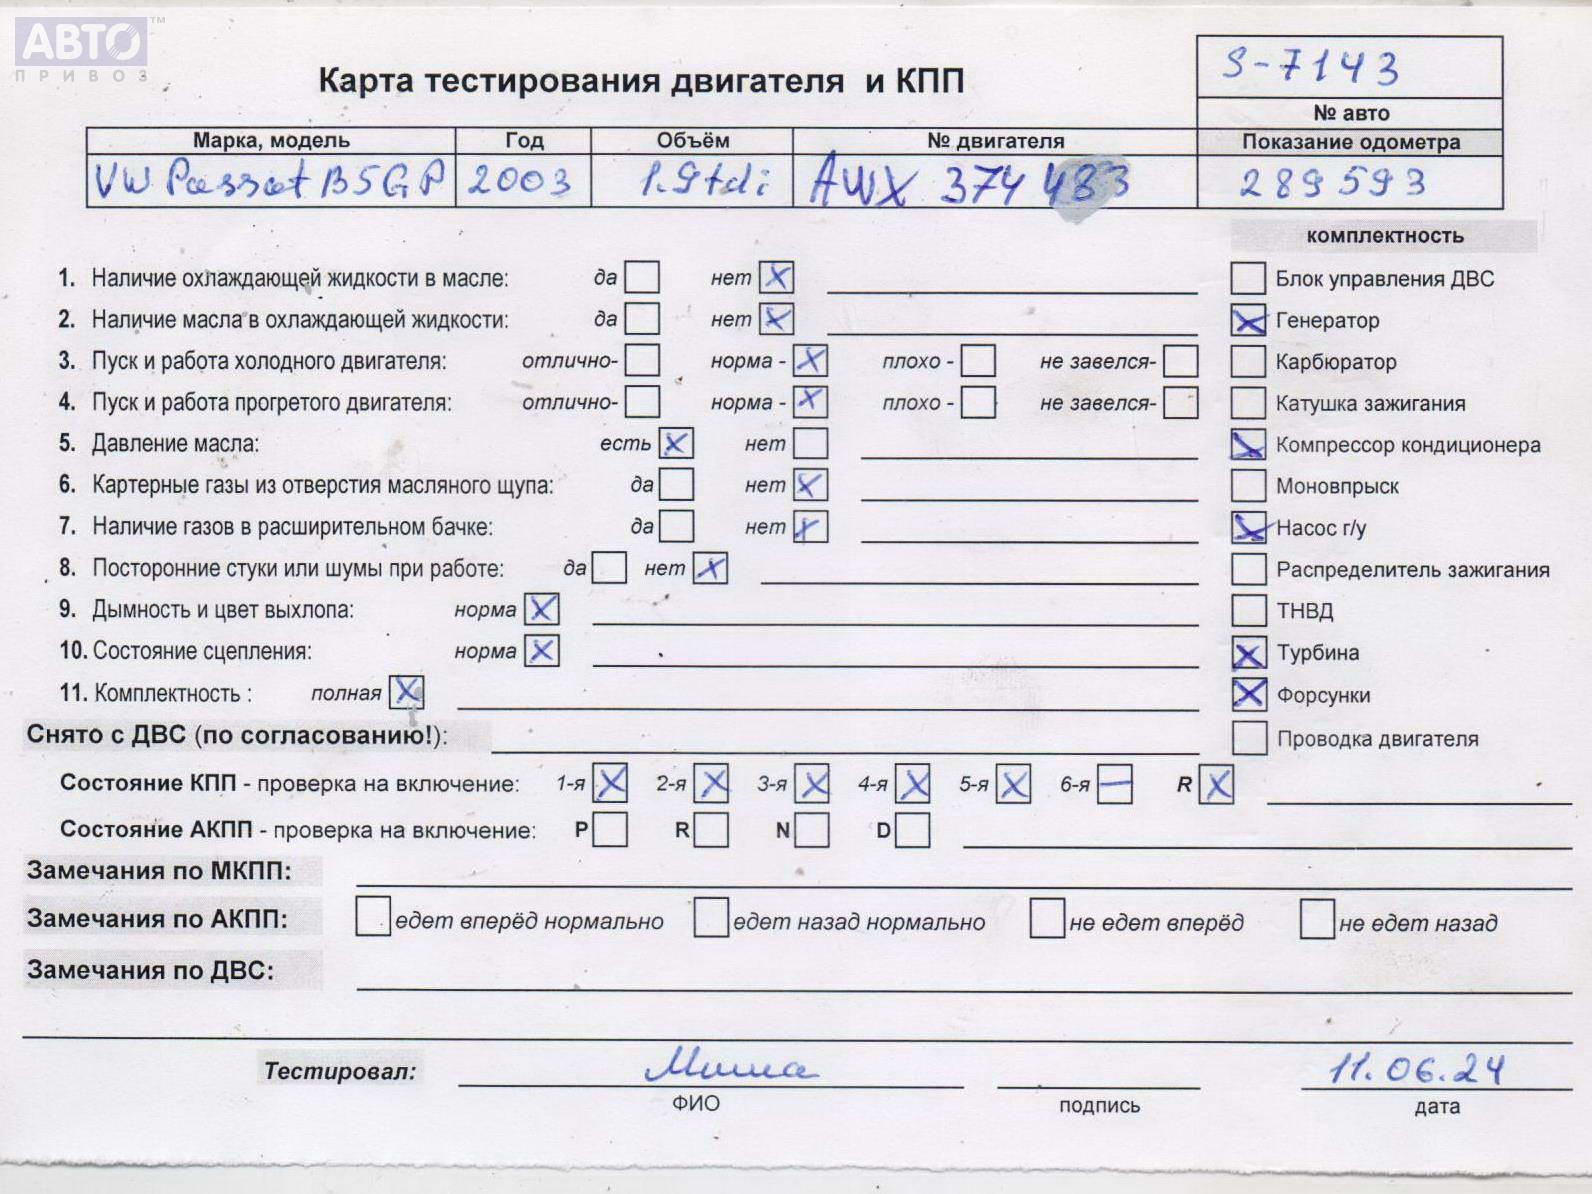 АВТО™
ПРИВОЗ
Карта тестирования двигателя и КПП
S-7143
№ авто
Марка, модель Год Объём № двигателя Показание одометра
VW Passat B5GP 2003 1.9tdi AWX 374 483 289593
комплектность
1. Наличие охлаждающей жидкости в масле: да нет X Блок управления ДВС
2. Наличие масла в охлаждающей жидкости: да нет X X Генератор
3. Пуск и работа холодного двигателя: отлично- норма - X плохо - не завелся- Карбюратор
4. Пуск и работа прогретого двигателя: отлично- норма - X плохо - не завелся- Катушка зажигания
5. Давление масла: есть X нет X Компрессор кондиционера
6. Картерные газы из отверстия масляного щупа: да нет X Моновпрыск
7. Наличие газов в расширительном бачке: да нет X X Насос г/у
8. Посторонние стуки или шумы при работе: да нет X Распределитель зажигания
9. Дымность и цвет выхлопа: норма X ТНВД
10. Состояние сцепления: норма X X Турбина
11. Комплектность : полная X X Форсунки
Снято с ДВС (по согласованию!): Проводка двигателя
Состояние КПП - проверка на включение: 1-я X 2-я X 3-я X 4-я X 5-я X 6-я — R X
Состояние АКПП - проверка на включение: P R N D
Замечания по МКПП:
Замечания по АКПП: едет вперёд нормально едет назад нормально не едет вперёд не едет назад
Замечания по ДВС:
Тестировал: Миша 11.06.24
ФИО подпись дата